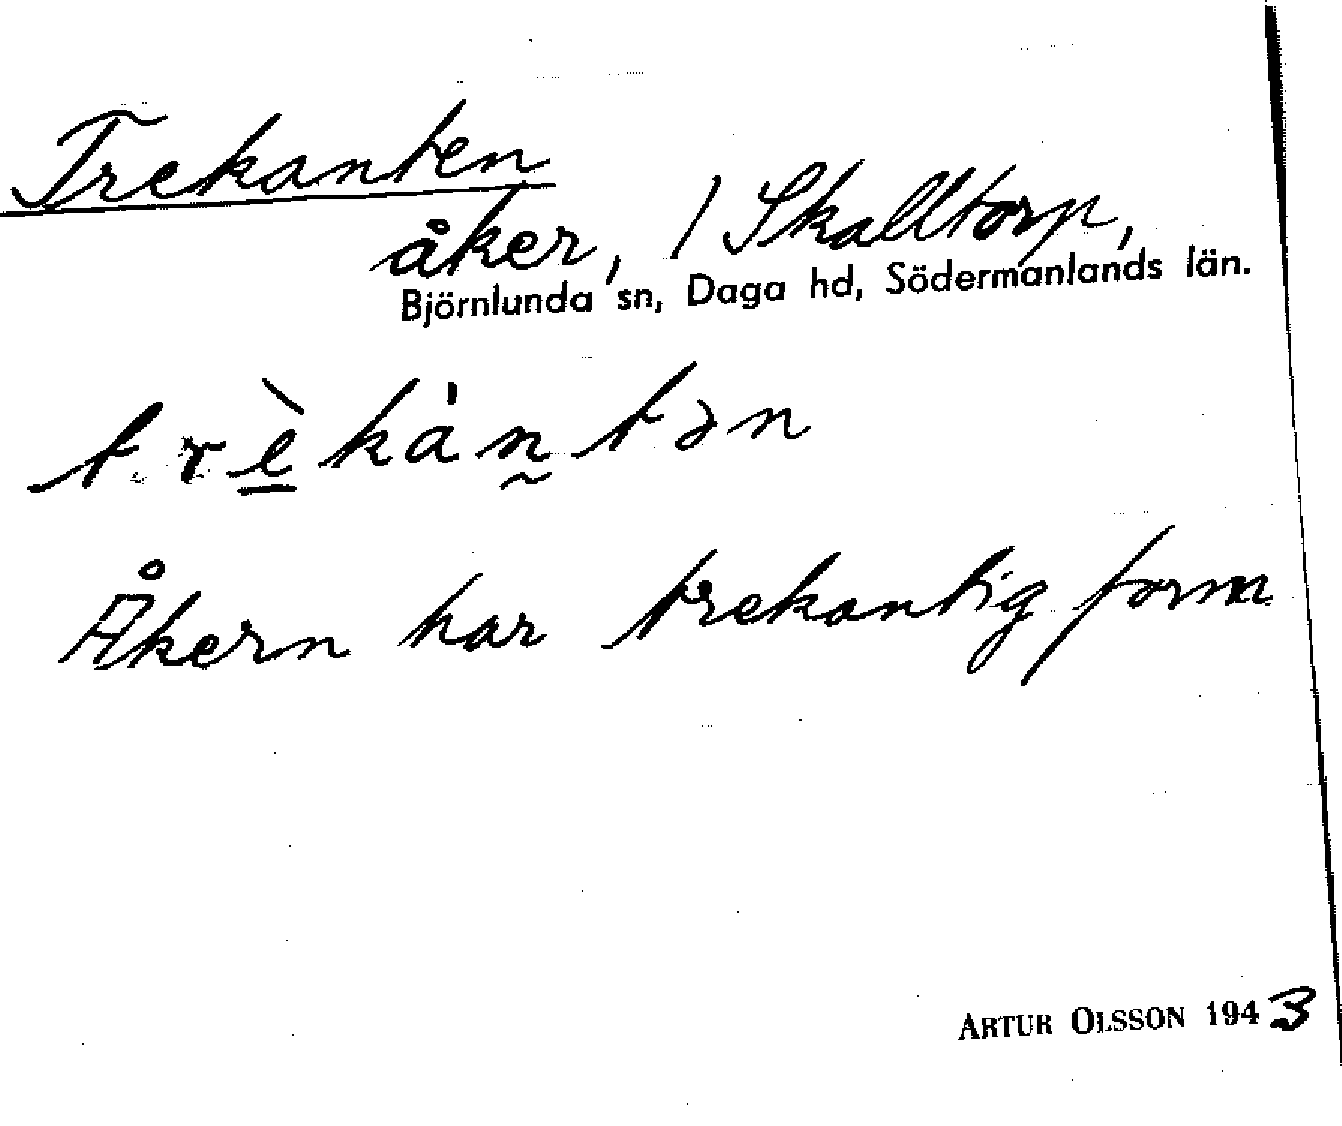 Trekanten
åker, / Skalltorp,
Björnlunda sn, Daga hd, Södermanlands län.
trè̲kàn̰tən
Åkern har trekantig form
ARTUR OLSSON 1943